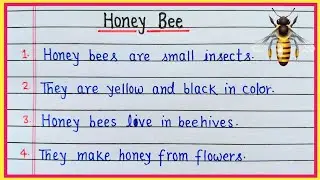 Honey Bee
1. Honey bees are small insects.
2. They are yellow and black in color.
3. Honey bees live in beehives.
4. They make honey from flowers.